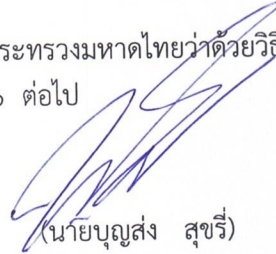 ระทรวงมหาดไทยว่าด้วยวิธี
ต่อไป
(นายบุญส่ง สุขรี่)